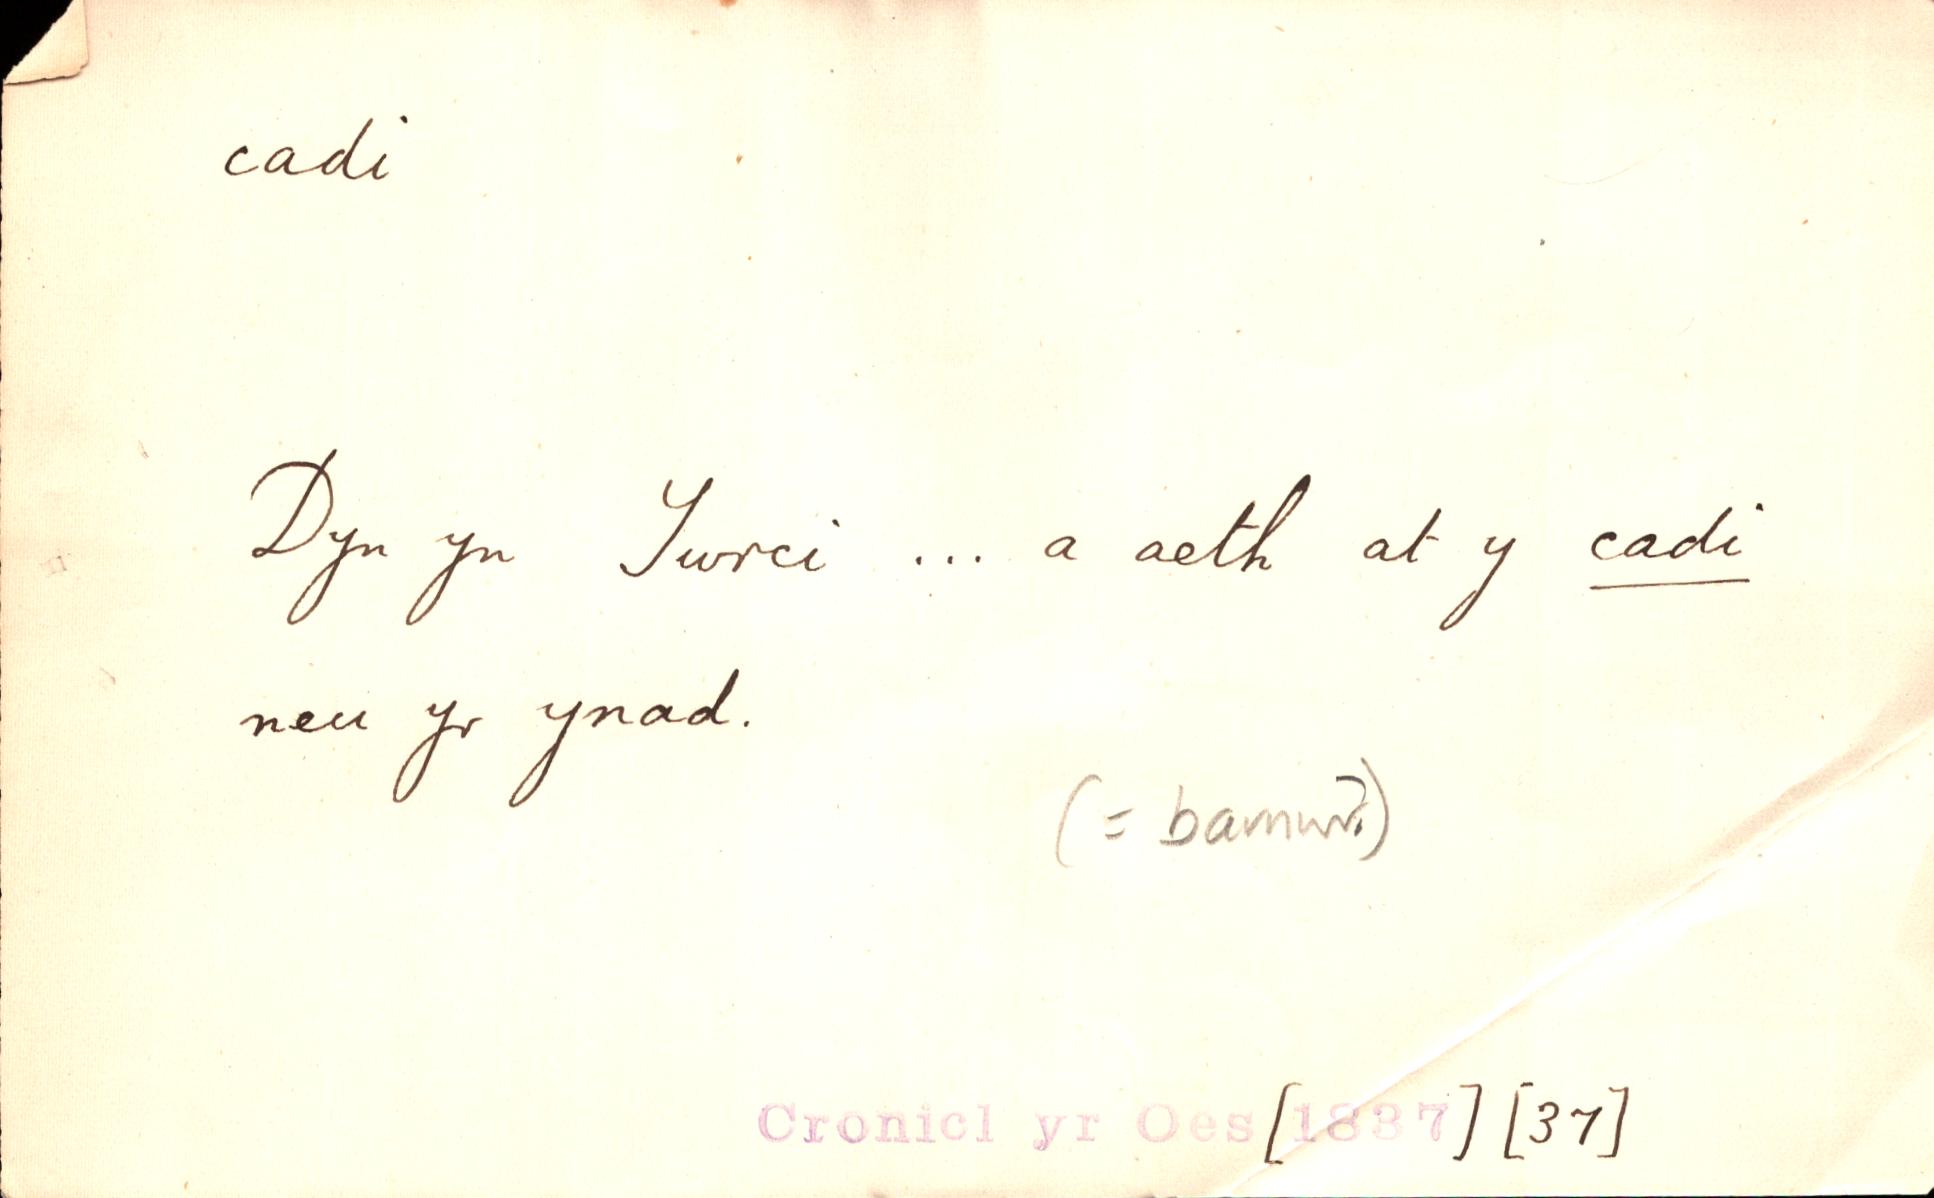 cadi
Dyn yn Twrci ... a aeth at y cadi
neu yr ynad.
(= barnwr?)
Cronicl yr Oes [1837] [37]